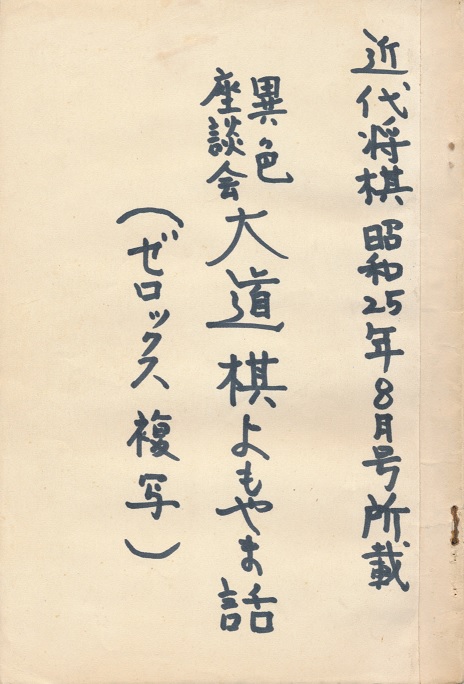 近代将棋 昭和25年8月号所載
異色座談会 大道棋よもやま話
(ゼロックス複写)